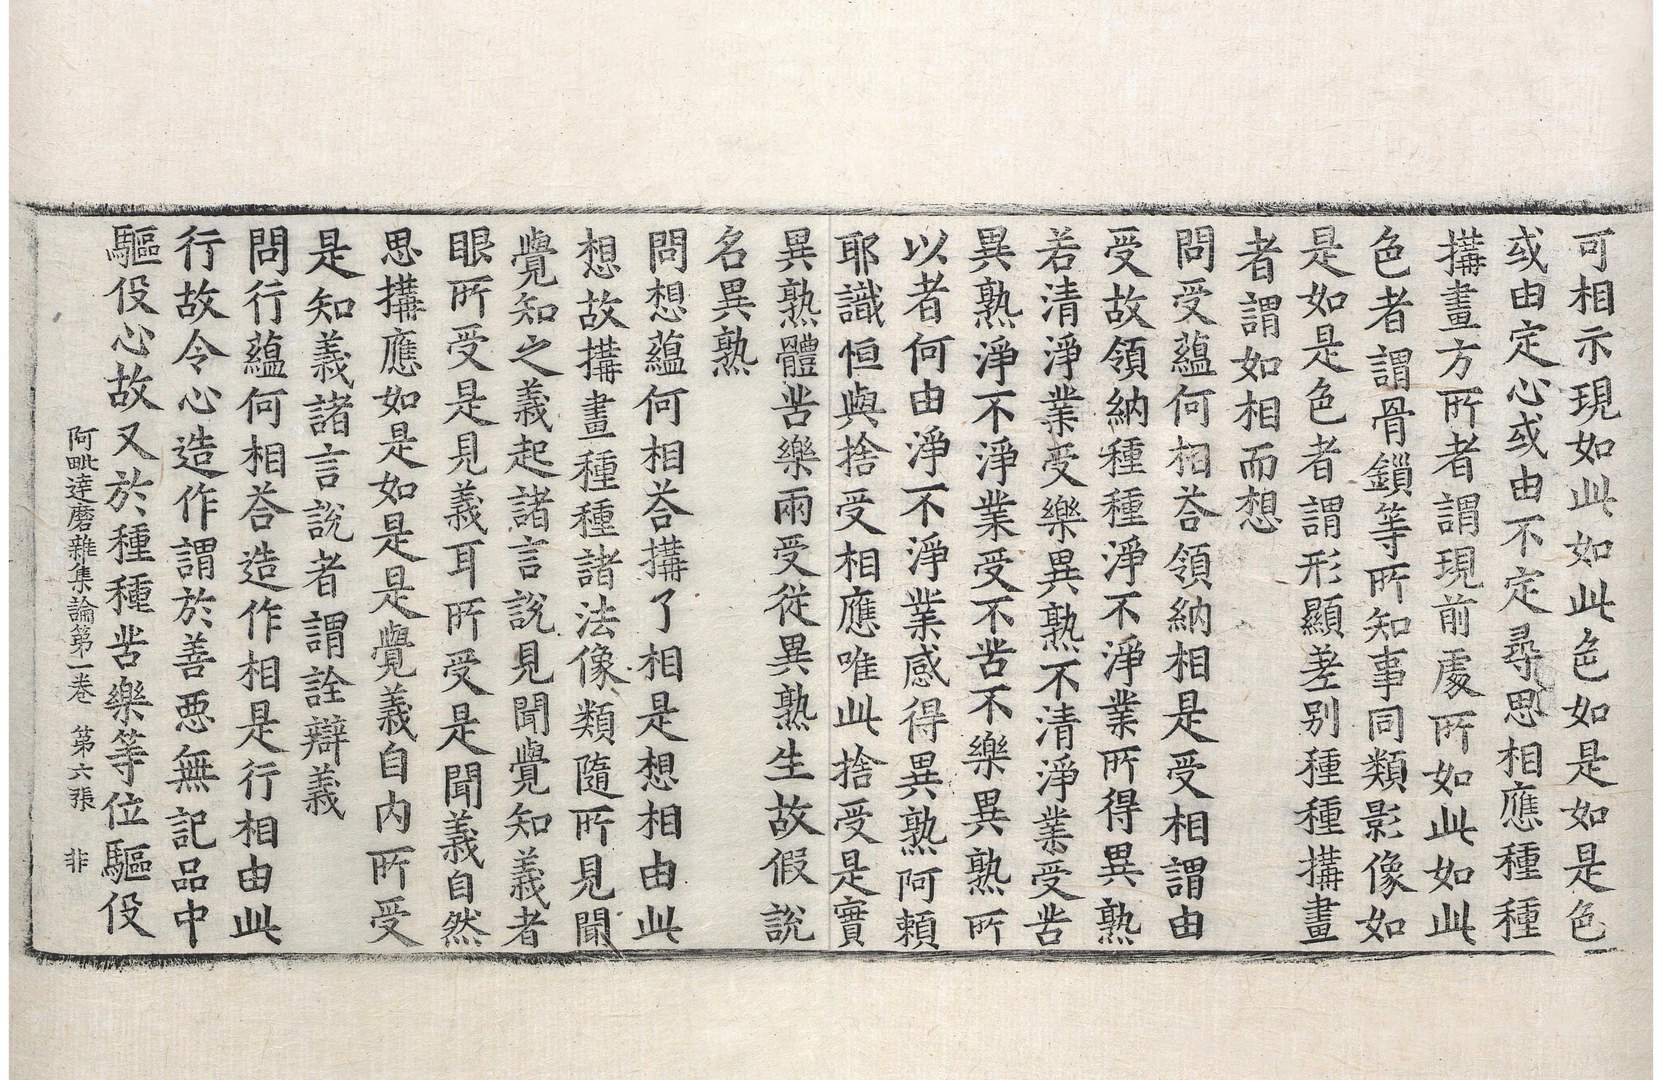 可相示現如此如此色如是如是色
或由定心或由不定尋思相應種種
搆畫方所者謂現前處所如此如此
色者謂骨鎻等所知事同類影像如
是如是色者謂形顯差别種種搆畫
者謂如相而想
問受蘊何相荅領納相是受相謂由
受故領納種種淨不淨業所得異熟
若清淨業受樂異熟不清淨業受苦
異熟淨不淨業受不苦不樂異熟所
以者何由淨不淨業感得異熟阿頼
耶識恒與捨受相應唯此捨受是實
異熟體苦樂兩受從異熟生故假說
名異熟
問想蘊何相荅搆了相是想相由此
想故搆畫種種諸法像類隨所見聞
覺知之義起諸言說見聞覺知義者
眼所受是見義耳所受是聞義自然
思搆應如是如是是覺義自内所受
是知義諸言說者謂詮辯義
問行蘊何相荅造作相是行相由此
行故令心造作謂於善惡無記品中
驅役心故又於種種苦樂等位驅役
阿毗達磨雜集論第一卷 第六張 非